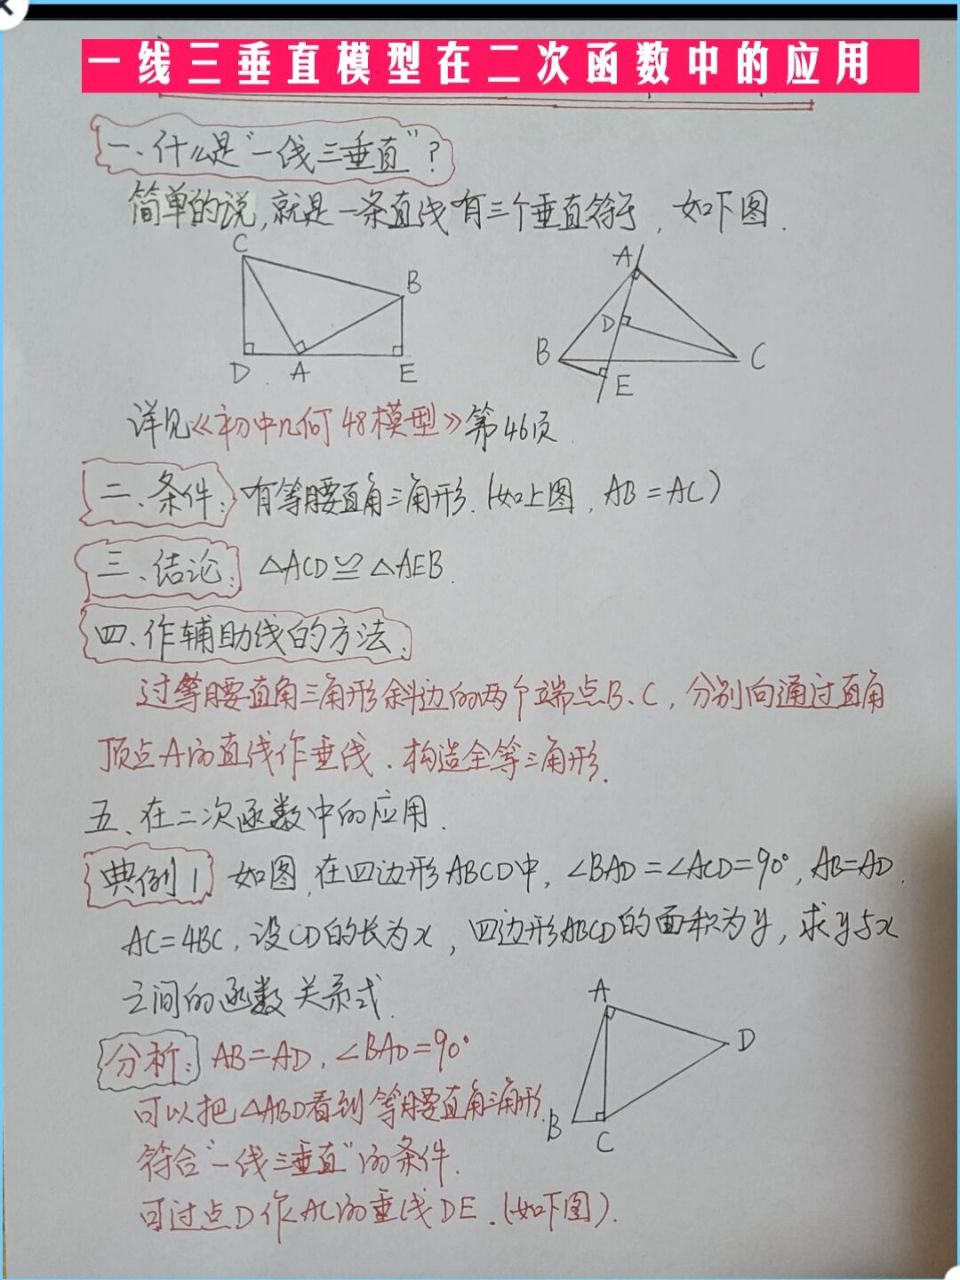 一线三垂直模型在二次函数中的应用
一、什么是"一线三垂直"?
简单的说,就是一条直线有三个垂直符号,如下图.
C
B
D A E
A
D
B C
E
详见《初中几何48模型》第46页
二、条件:有等腰直角三角形.(如上图,AB=AC)
三、结论:△ACD≌△AEB.
四、作辅助线的方法.
过等腰直角三角形斜边的两个端点B、C,分别向通过直角
顶点A的直线作垂线.构造全等三角形.
五、在二次函数中的应用.
典例1 如图,在四边形ABCD中,∠BAD=∠ACD=90°,AB=AD,
AC=4BC,设CD的长为x,四边形ABCD的面积为y,求y与x
之间的函数关系式.
A
D
B
C
分析:AB=AD,∠BAD=90°
可以把△ABD看到等腰直角三角形,
符合"一线三垂直"的条件.
可过点D作AC的垂线DE.(如下图).